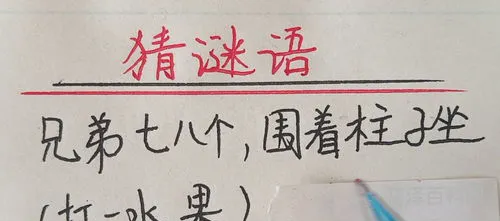 猜谜语
兄弟七八个，围着柱子坐
（打一水果）